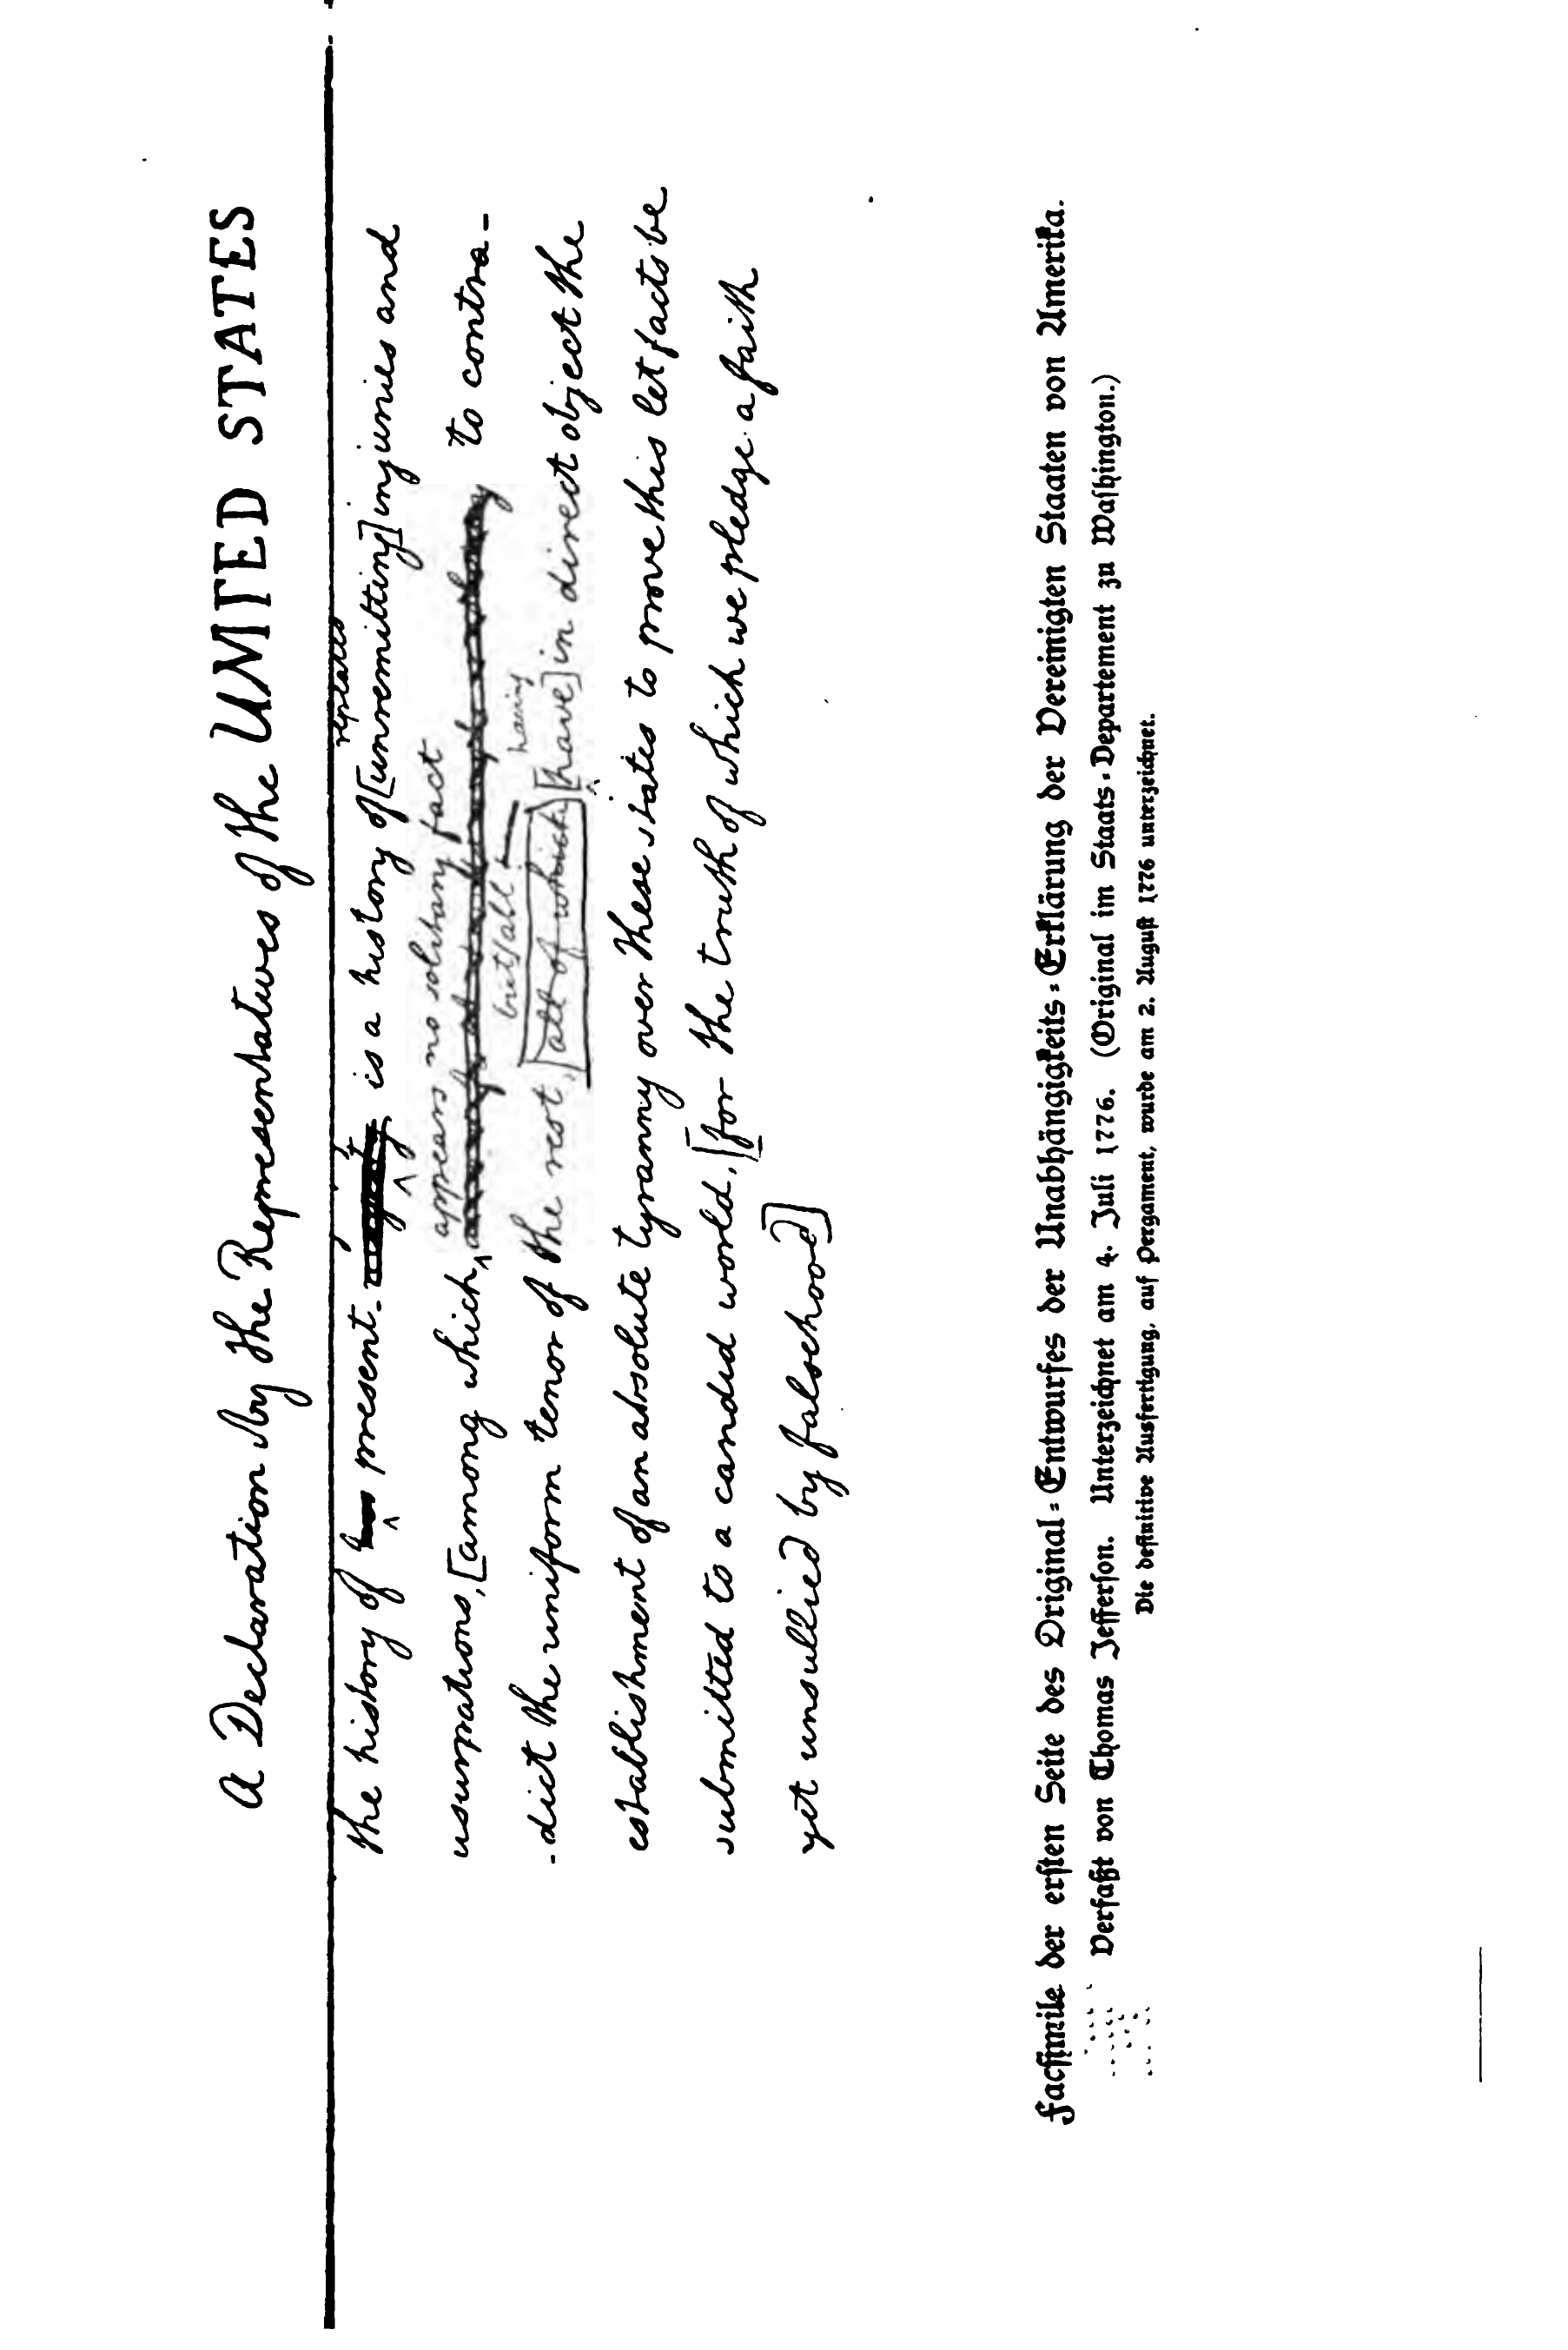 a Declaration by the Representatives of the UNITED STATES
repeated
the history of present is a history of [unremitting] injuries and
appears no solitary fact
usurpations, [among which to contra-
but all having
-dict the uniform tenor of the rest, [all of which] [have] in direct object the
establishment of an absolute tyranny over these states to prove this let facts be
submitted to a candid world, [for the truth of which we pledge a faith
yet unsullied by falsehood]
Facsimile der ersten Seite des Original-Entwurfes der Unabhängigkeits-Erklärung der Vereinigten Staaten von Amerika.
Verfaßt von Thomas Jefferson. Unterzeichnet am 4. Juli 1776. (Original im Staats-Departement zu Washington.)
Die definitive Ausfertigung, auf Pergament, wurde am 2. August 1776 unterzeichnet.